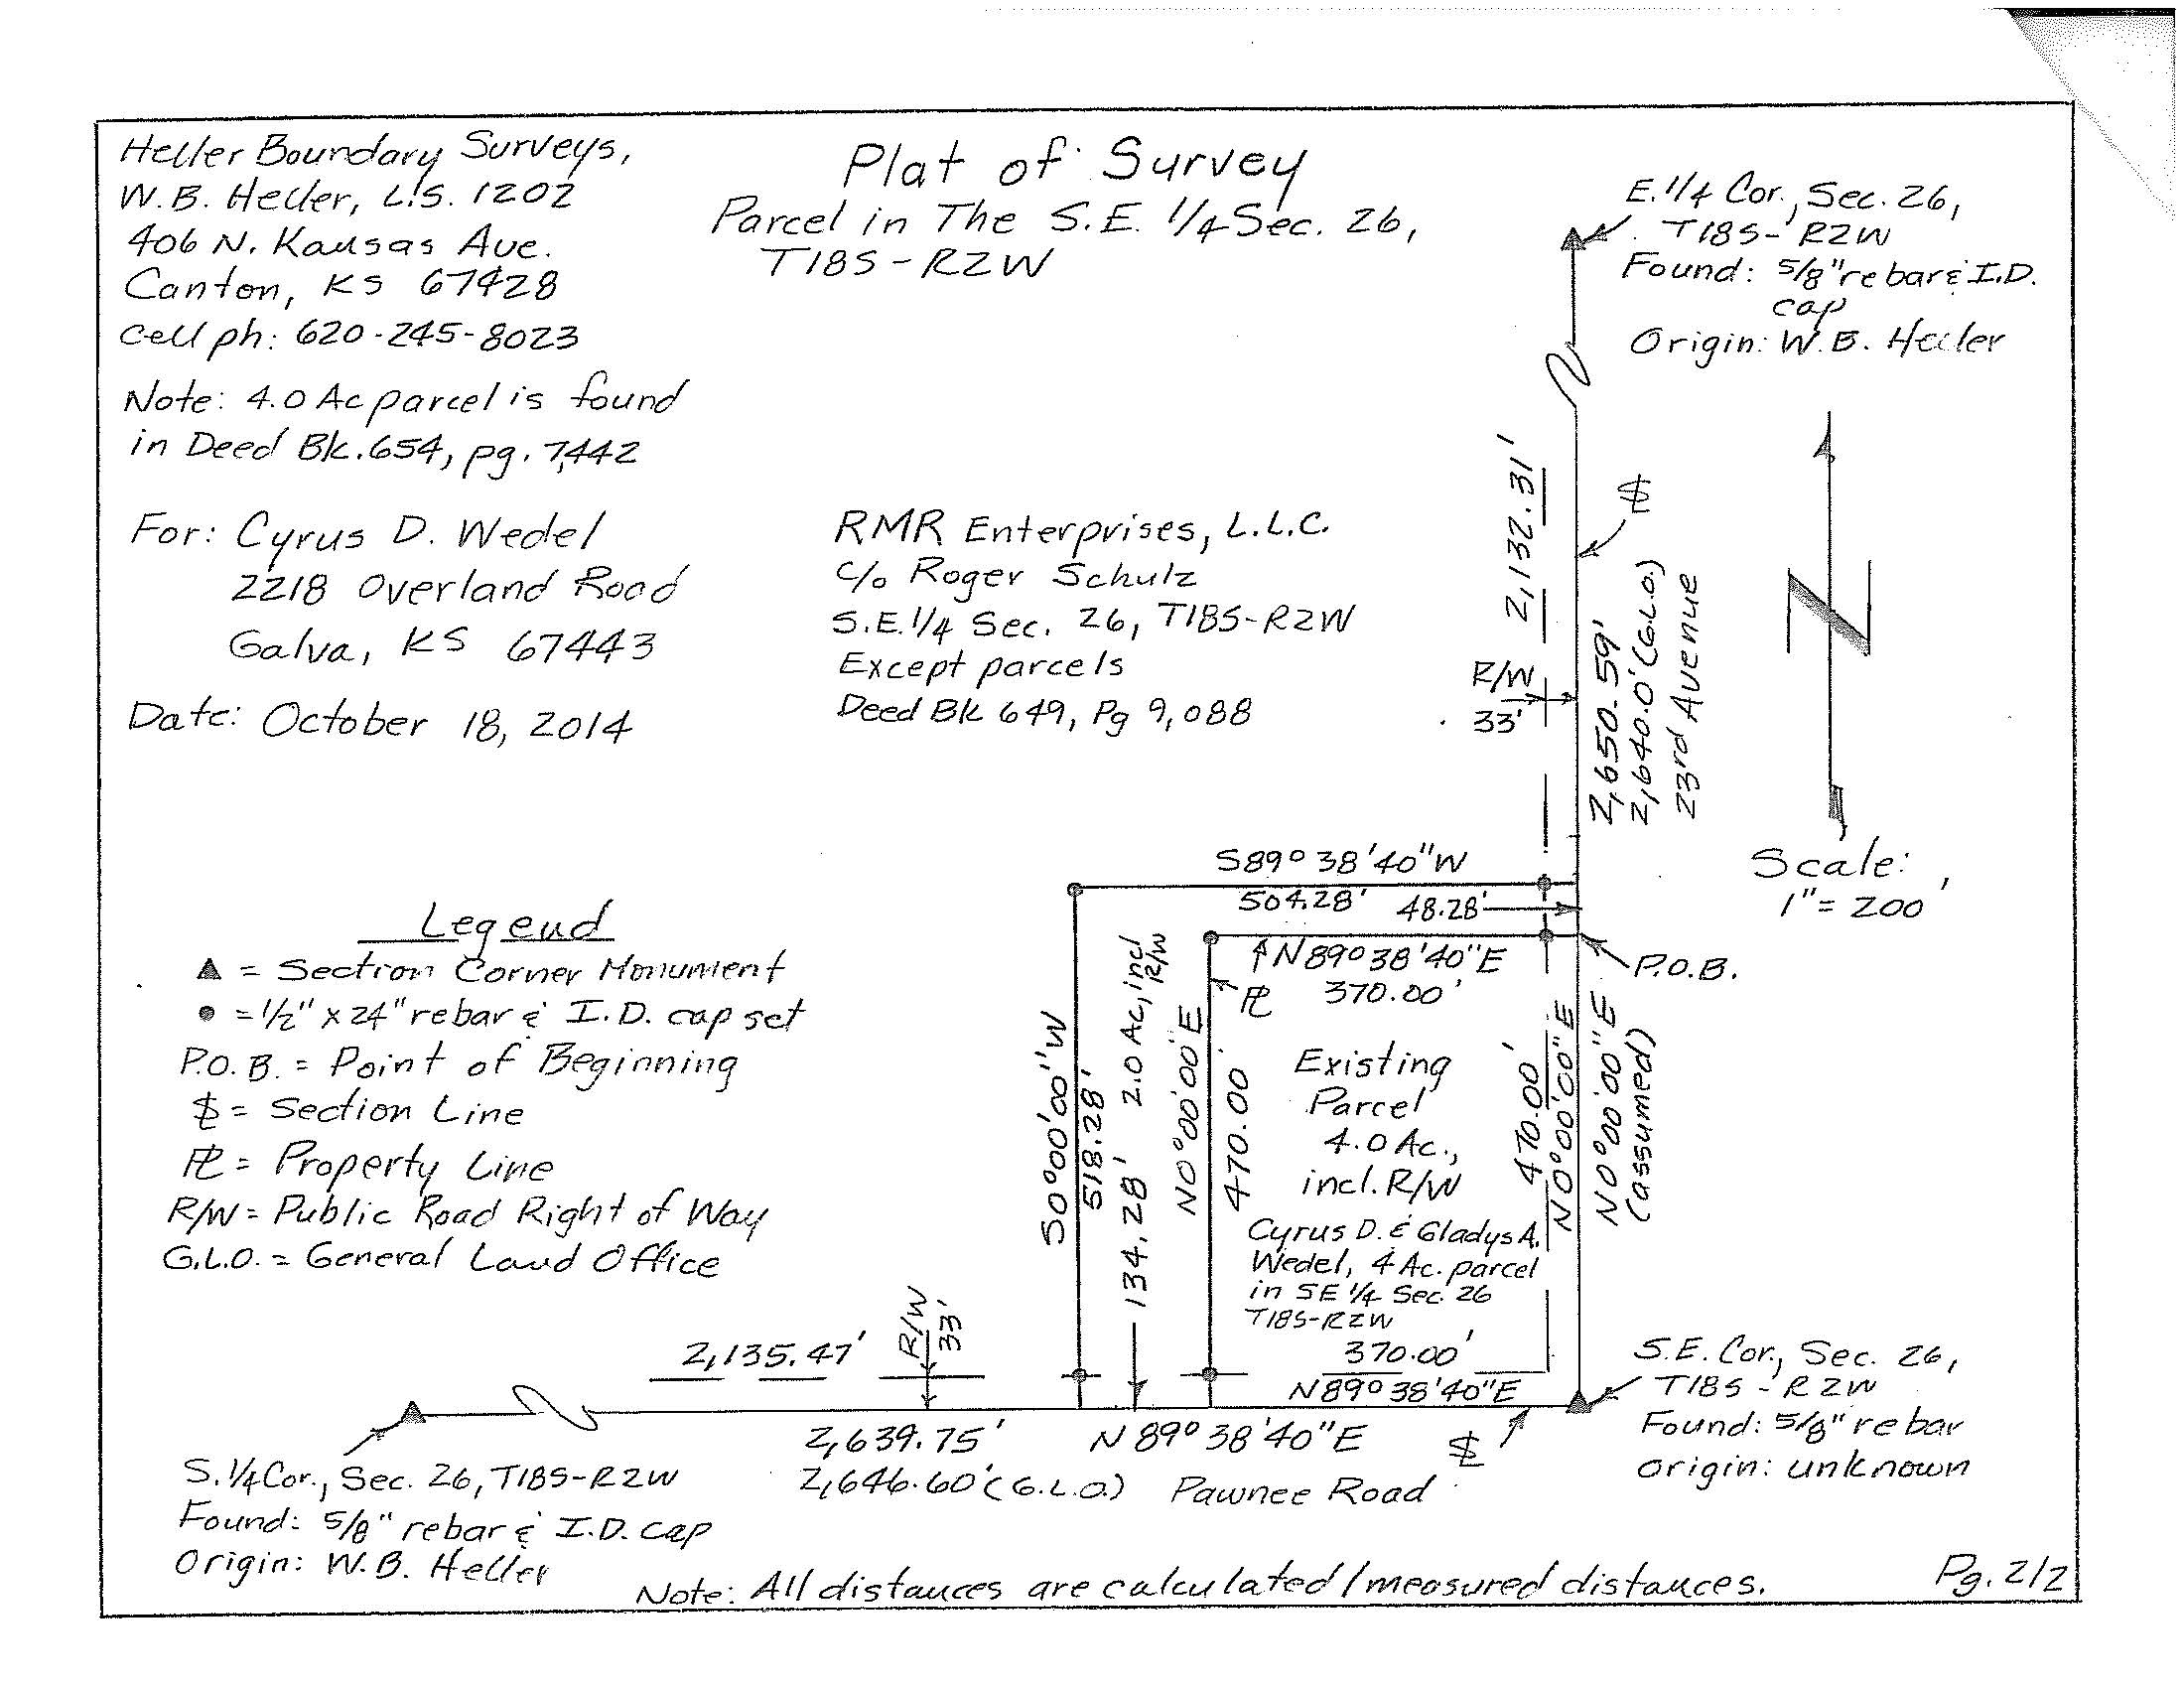 Heller Boundary Surveys,
W.B. Heller, L.S. 1202
406 N. Kansas Ave.
Canton, KS 67428
Cell ph: 620-245-8023
Note: 4.0 Ac parcel is found
in Deed Bk. 654, pg. 7,442
For: Cyrus D. Wedel
2218 Overland Road
Galva, KS 67443
Date: October 18, 2014
Plat of Survey
Parcel in The S.E. 1/4 Sec. 26,
T18S-R2W
E. 1/4 Cor., Sec. 26,
T18S-R2W
Found: 5/8" rebar & I.D.
cap
Origin: W.B. Heller
RMR Enterprises, L.L.C.
c/o Roger Schulz
S.E. 1/4 Sec. 26, T18S-R2W
Except parcels
Deed Bk 649, Pg 9,088
2,132.31'
R/W
33'
2,650.59'
2,640.0' (G.L.O.)
23rd Avenue
N
Scale:
1" = 200'
Legend
= Section Corner Monument
= 1/2" x 24" rebar & I.D. cap set
P.O.B. = Point of Beginning
SL = Section Line
PL = Property Line
R/W = Public Road Right of Way
G.L.O. = General Land Office
S89°38'40"W
504.28' 48.28'
N89°38'40"E
370.00'
PL
P.O.B.
S0°00'00"W
518.28'
134.28' 2.0 Ac, incl
R/W
N0°00'00"E
470.00'
Existing
Parcel
4.0 Ac.,
incl. R/W
Cyrus D. & Gladys A.
Wedel, 4 Ac. parcel
in SE 1/4 Sec. 26
T18S-R2W
370.00'
N89°38'40"E
470.00'
N0°00'00"E
N0°00'00"E
(assumed)
2,135.47'
R/W
33'
S.E. Cor., Sec. 26,
T18S-R2W
Found: 5/8" rebar
origin: unknown
2,639.75' N89°38'40"E SL
2,646.60' (G.L.O.) Pawnee Road
S. 1/4 Cor., Sec. 26, T18S-R2W
Found: 5/8" rebar & I.D. cap
Origin: W.B. Heller
Note: All distances are calculated/measured distances.
Pg. 2/2